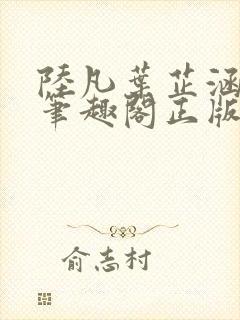 陸凡葉芷涵
筆趣閣正版
俞志村